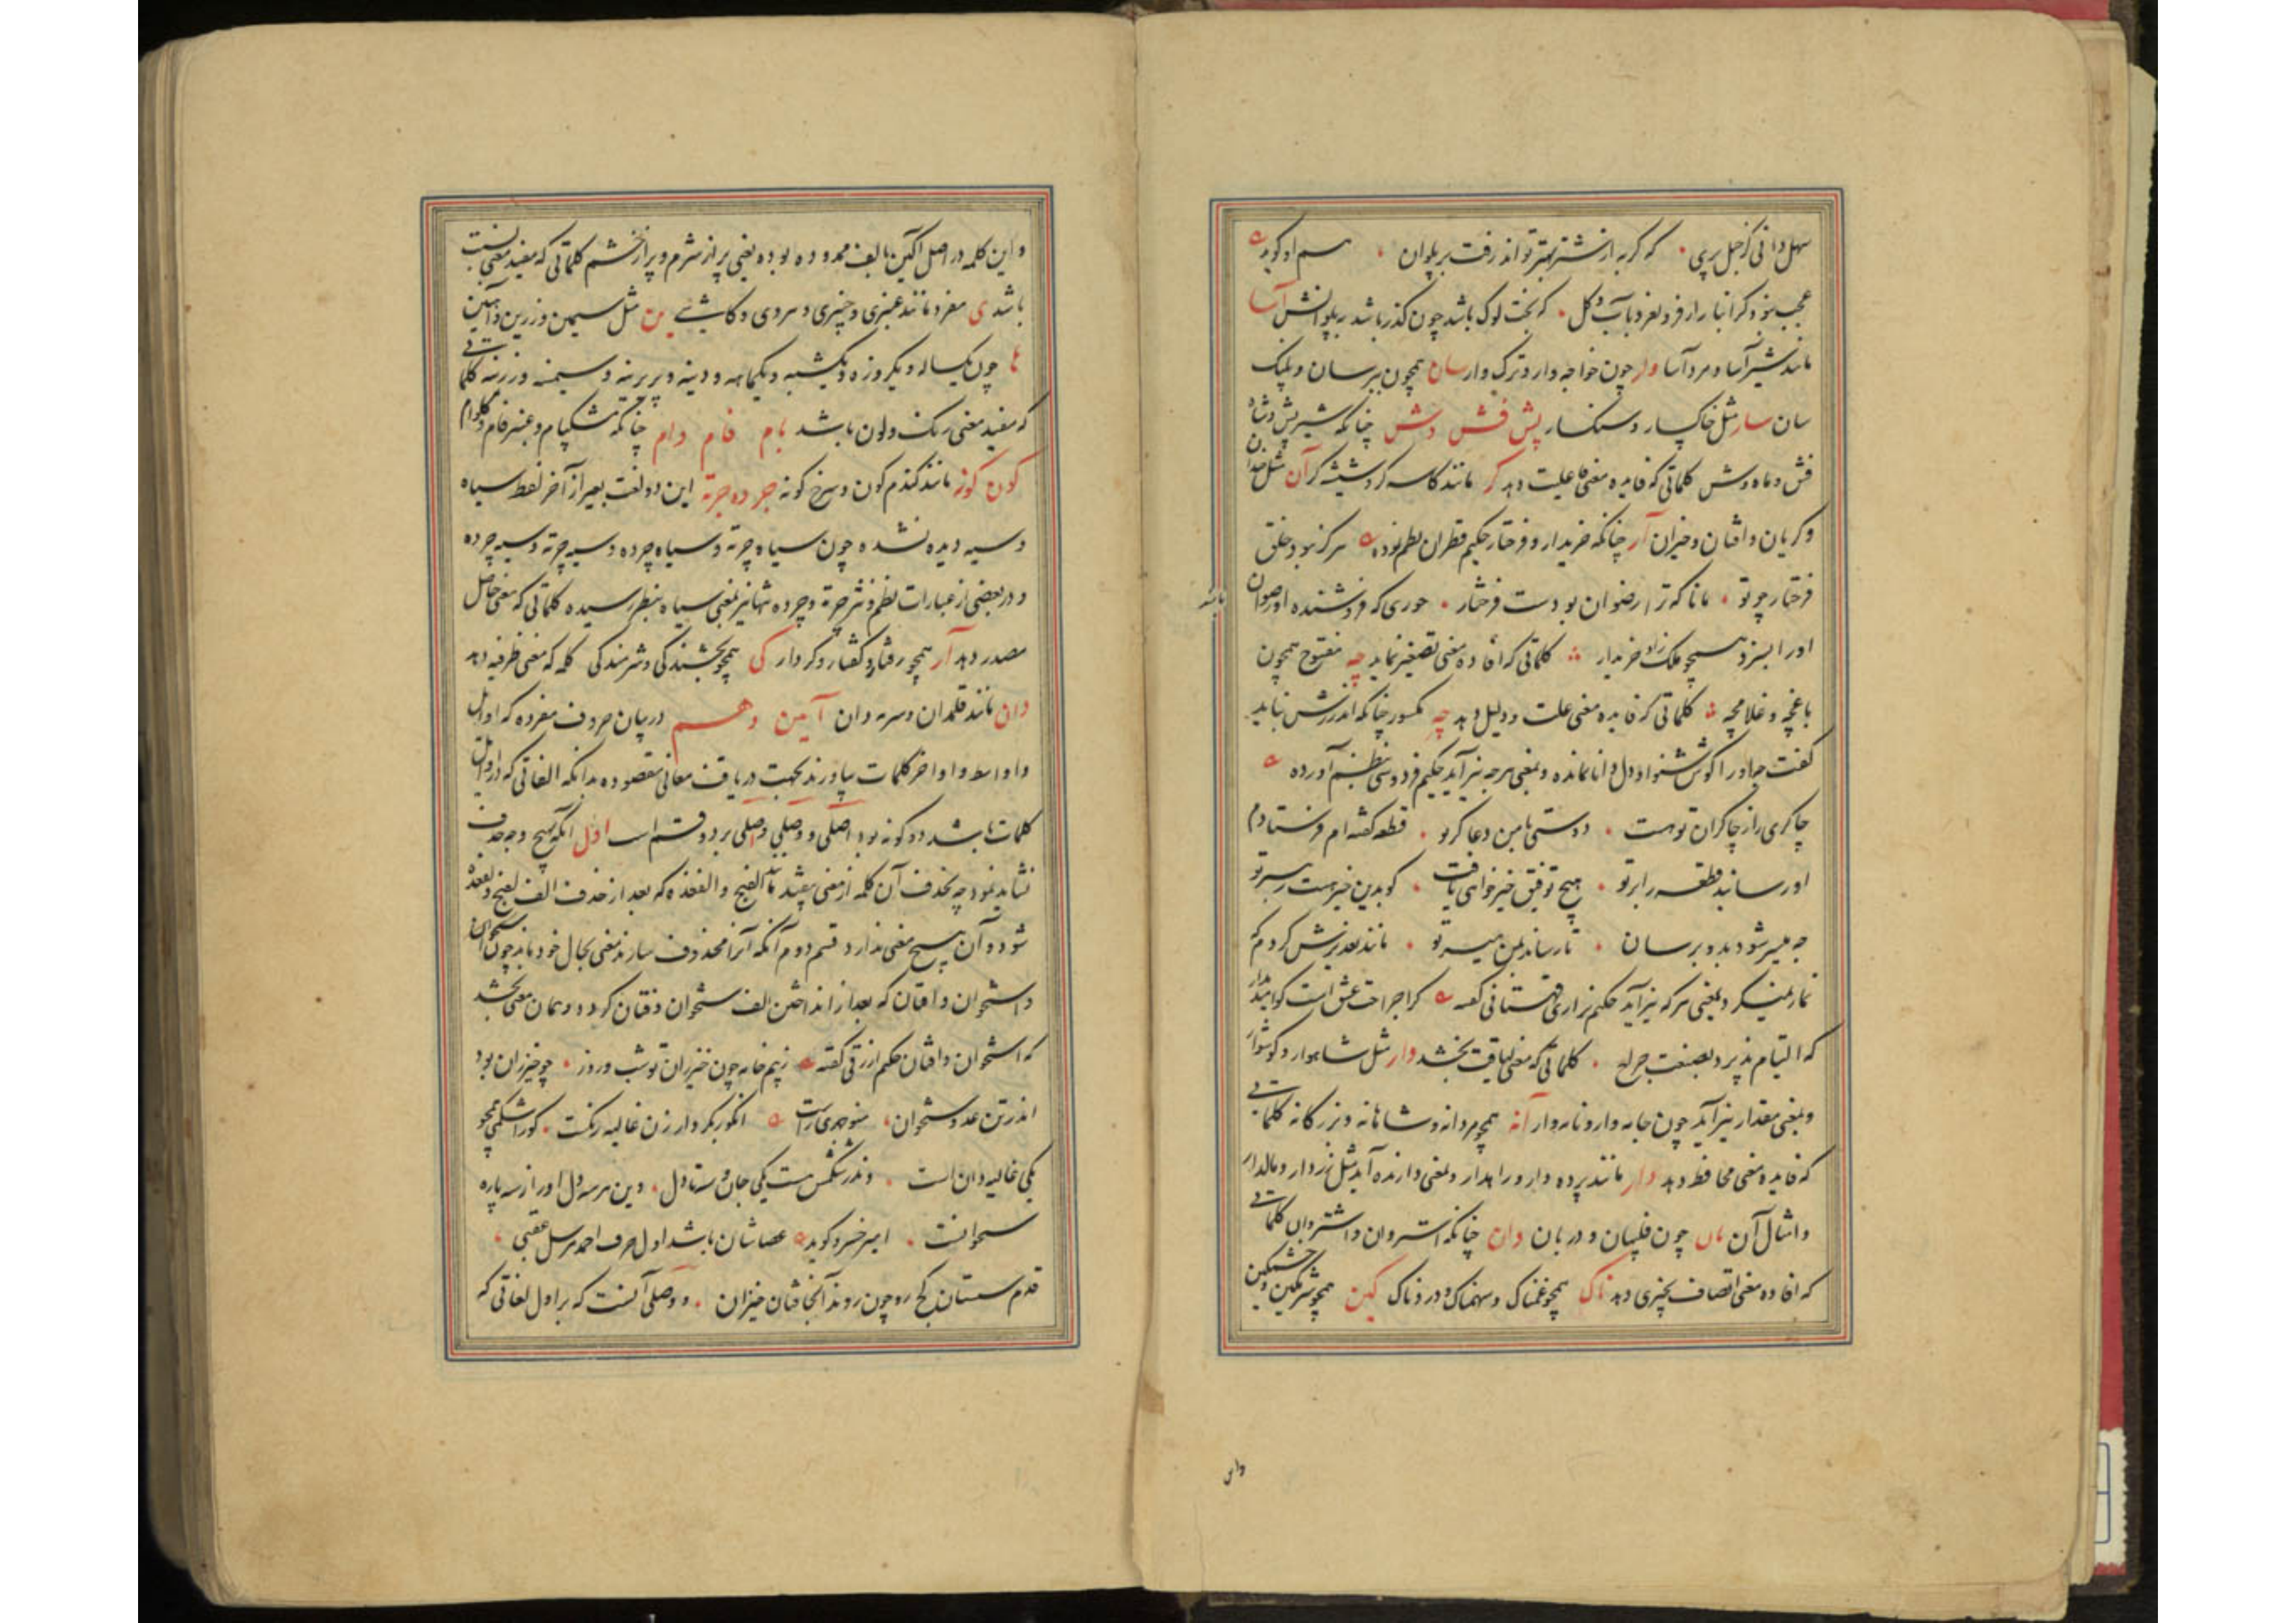 سهل دانی کز جبل بر پی که گربه از شتر بهتر تواند رفت بر پلوان هم او گوید
عجب نبود گر انبار ار فرو لغزد بآب و گل که بخت لوک باشد چون گذر باشد بر پلوانش آسا
مانند شیر آسا و مرد آسا وار چون خواجه وار و ترک وار سان همچون ببر سان و پلنک
سان سار مثل خاکسار و سنکسار پش فش وش چنانکه شیر پش و شاه
فش و ماه وش کلماتی که فایده معنی فاعلیت دهد گر مانند کاسه گر و شیشه گر آن مثل خندان
و گریان و افتان و خیزان آر چنانکه خریدار و فرختار حکیم قطران نظم نموده هرگز نبود خلق
فرختار چو تو مانا که ترا رضوان بودست فرختار حوری که فروشنده او رضوان
باشد
اورا نسزد هیچو ملک زاد خریدار کلماتی که افاده معنی تصغیر نماید چه مفتوح همچون
باغچه و غلامچه کلماتی که فایده معنی علت و دلیل دهد چه مکسور چنانکه اندرزش نباید
گفت چه اورا گوش شنوا و دل دانا نمانده و بمعنی هرچه نیز آید حکیم فردوسی نظم آورده
چاکری را ز چاکران توهست دوستی بامن دعا گر تو قطعه گفته ام فرستادم
اورسانید قطعه را بر تو هیچ توفیق خیر خواهی یافت کو بدین خیر هست رهبر تو
چه میسر شود بدو برسان تا رساند بمن میسر تو مانند بعد پرسش کردم که
نماز میکرد و بمعنی هرکه نیز آید حکیم نزاری قهستانی گفته کرا جراحت عشق است گو امید مدار
که التیام پذیرد بصنعت جراح کلماتی که معنی لیاقت بخشد وار مثل شاهوار و گوشوار
و بمعنی مقدار نیز آید چون جامه وار و نامه وار آنه همچو مردانه و شاهانه و بزرگانه کلماتی
که فایده معنی محافظ دهد دار مانند پرده دار و راهدار و بمعنی دارنده آید مثل زردار و مالدار
و امثال آن بان چون فلیبان و دربان وان چنانکه استروان و اشتروان کلماتی
که افاده معنی اتصاف بچیزی دهد ناک همچو غمناک و سهمناک و دردناک گین همچو شرمگین و خشمگین
و این
و این کلمه در اصل آگین بالف ممدوده بوده یعنی پر از شرم و پر از خشم کلماتی که مفید معنی نسبت
باشد ی مفرد مانند عنبری و چنبری و سروی و کاشی ین مثل سیمین و زرین و آهنین
ها چون یکساله و یکروزه و یکشبه و یکماهه و دینه و پریرینه و سیمنه و زرینه کلماتی
که مفید معنی رنک و لون باشد بام فام وام چنانکه مشکبام و عنبر فام و گلوام
گون گونه مانند گندم گون و سرخ گونه جرده جرته این دو لغت بغیر از آخر لفظ سیاه
و سیه دیده نشده چون سیاه چرته و سیاه چرده و سیه چرته و سیه چرده
و در بعضی از عبارات نظم و نثر چرته و چرده تنها نیز بمعنی سیاه بنظر رسیده کلماتی که معنی حاصل
مصدر دهد آر همچو رفتار و گفتار و کردار گی همچو بخشندگی و شرمندگی کلمه که معنی ظرفیه دهد
دان مانند قلمدان و سرمه دان آیین دهم در بیان حروف مفرده که اوایل
و اواسط و اواخر کلمات بیاورند بجهت دریافت معانی مقصوده بدانکه الفاتی که در اوایل
کلمات باشد دو گونه بود اصلی و وصلی و اصلی بر دو قسم است اول آنکه بهیچ وجه حذف
نشاید نمود چه بحذف آن کلمه از معنی بیفتد مانند الفنج و الفغده که بعد از حذف الف لفنج و لفغده
شود و آن هیچ معنی ندارد قسم دوم آنکه آنرا محذوف سازند معنی بحال خود ماند چون
و استخوان و افتان که بعد از انداختن الف ستخوان و فتان گردد و همان معنی بخشد
که استخوان و افتان حکیم ازرقی گفته ز بیم خامه چون خیزران تو شب و روز چو خیزران بود
اندر تن عدو ستخوان منوچهری راست انگور بکردار زن غالیه رنکست کورا شکمی همچو
یکی غالیه دان است و ندر شکمش هست یکی جان و سه تا دل وین هر سه دل اورا ز سه پاره
ستخوانست امیر خسرو گوید عصاشان باشد اول حرف احمد مرسل عقبی
قدم سستان کج رو چون روند آنجا فتان خیزان و وصلی آنست که بر اول لغاتی که